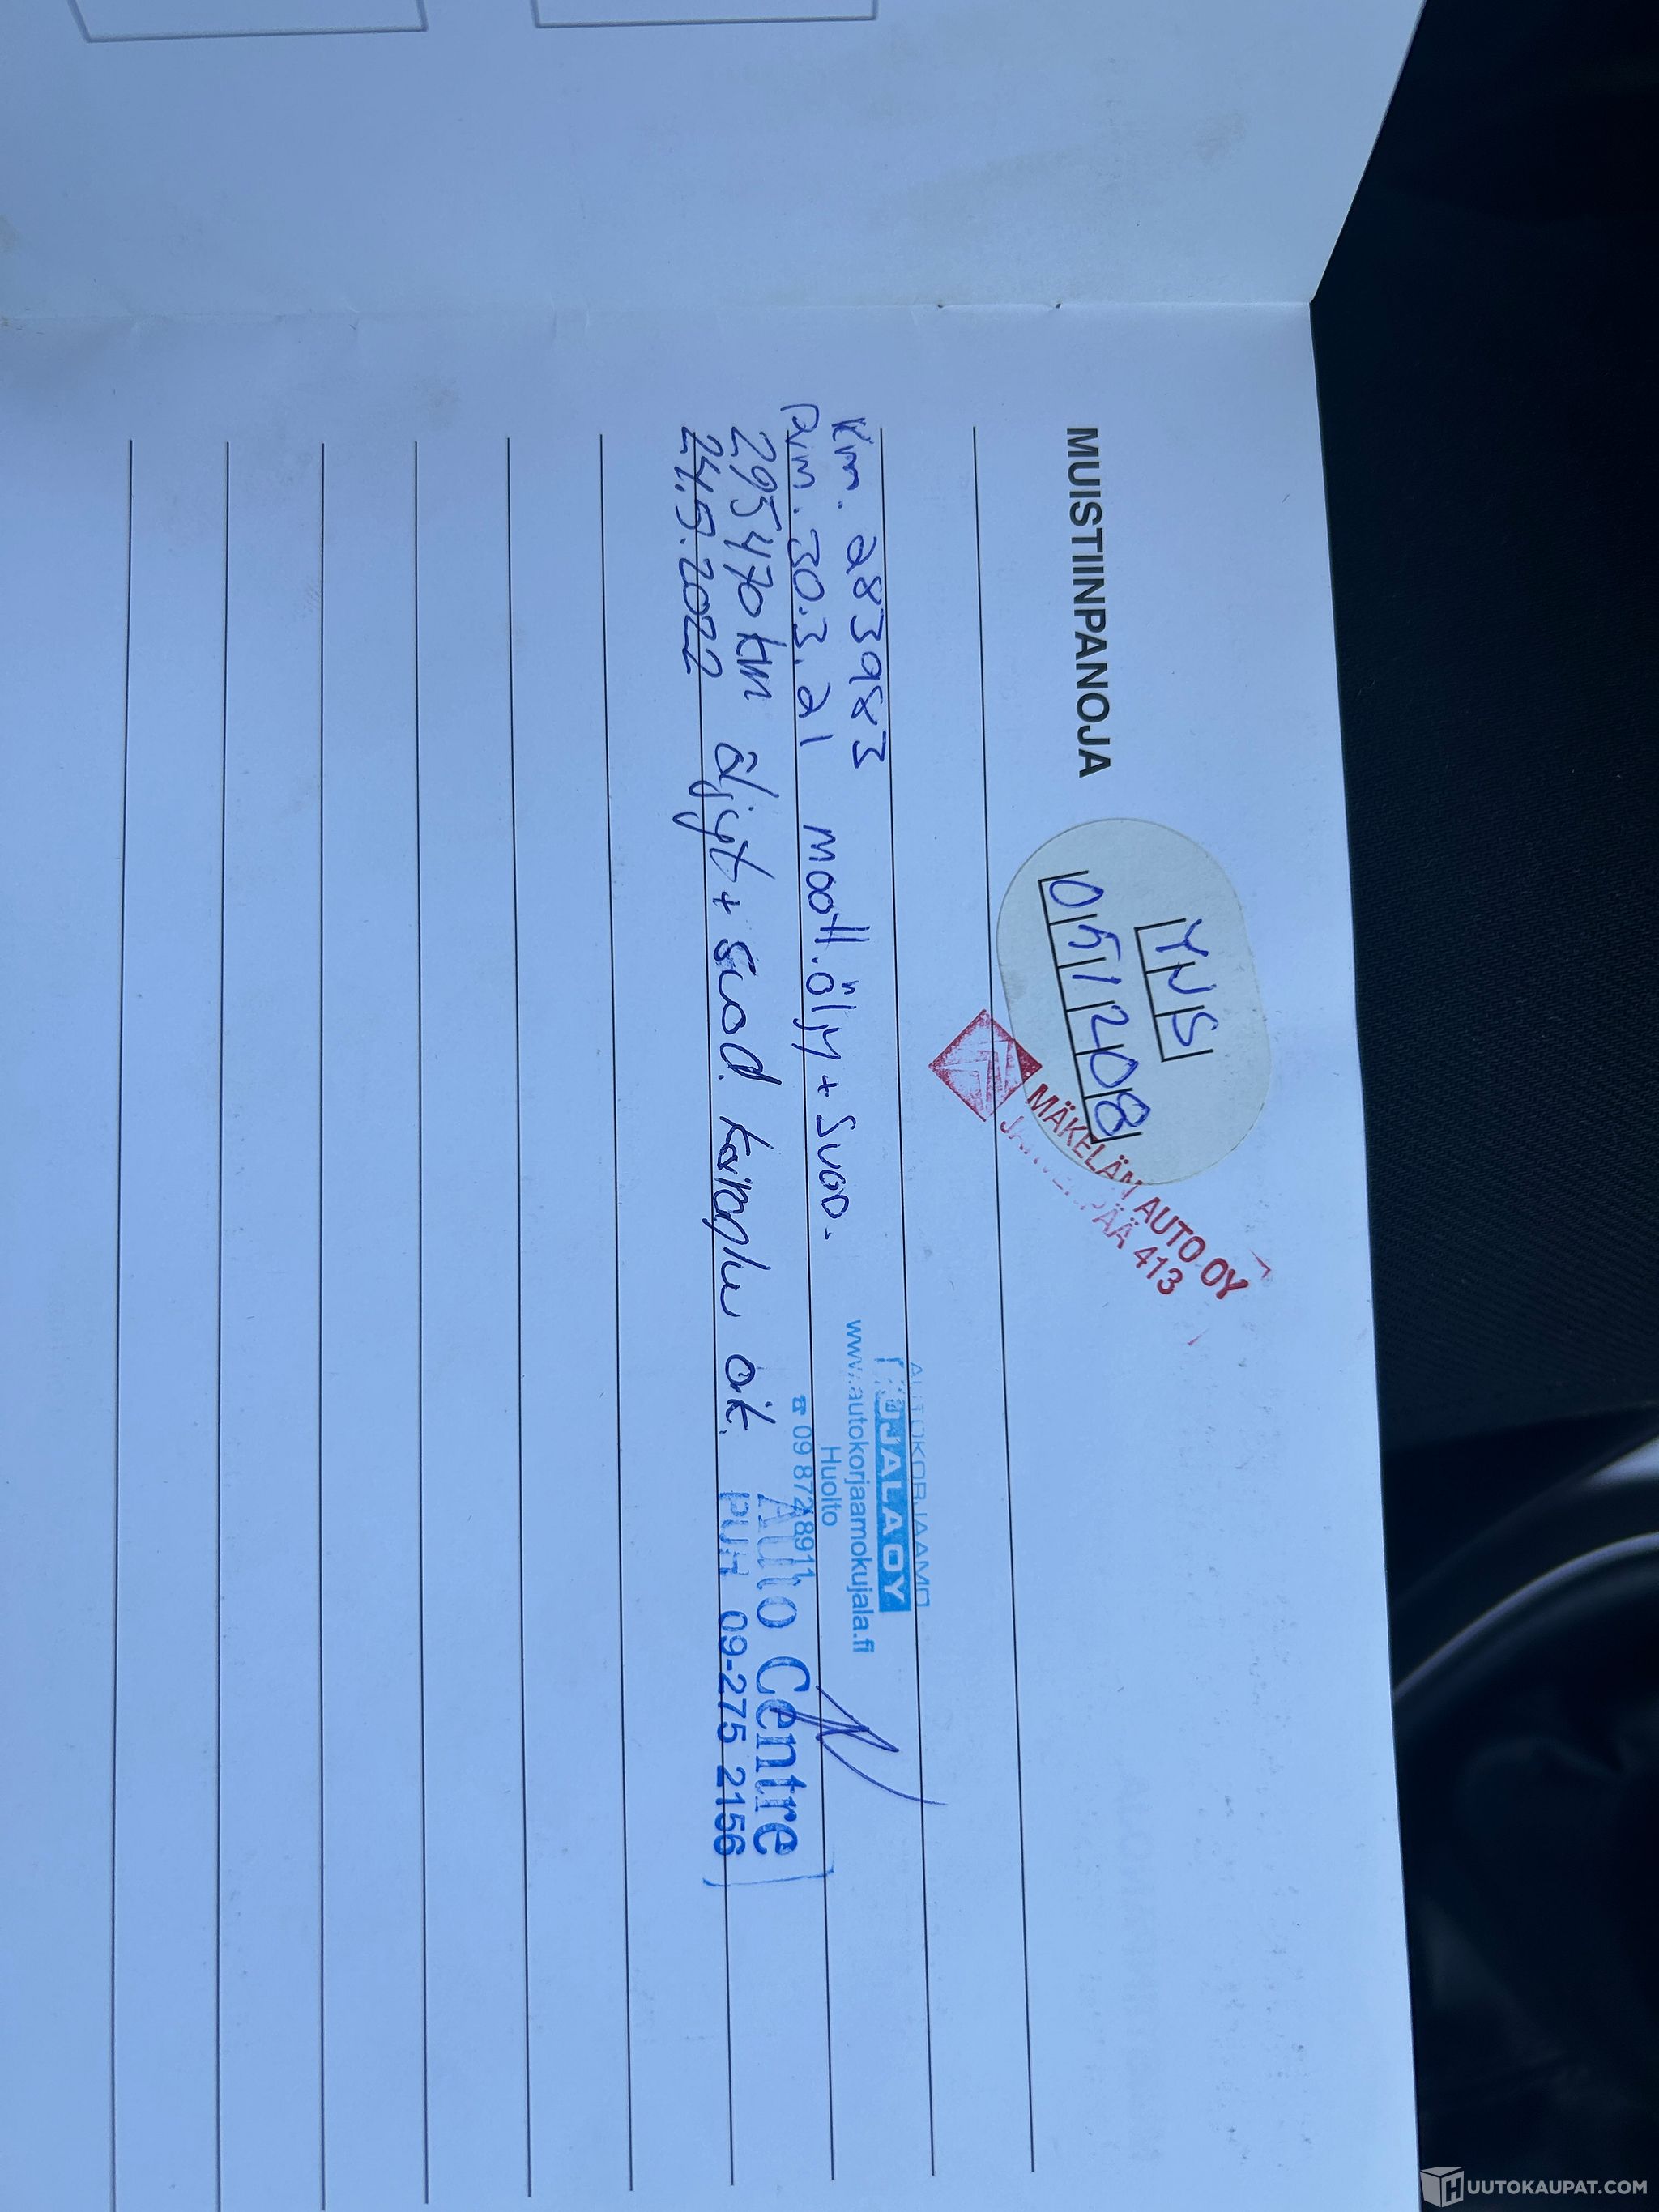 MUISTIINPANOJA
YJS
051208
MÄKELÄN AUTO OY
JÄRVENPÄÄ 413
Km. 283983
Pvm. 30.3.21 moott.öljy + suod.
AUTOKORJAAMO
KUJALA OY
www.autokorjaamokujala.fi
Huolto
☎ 09 8728911
295470 km öljyt + suod. ok.
24.5.2022
Auto Centre
PUH 09-275 2156
HUUTOKAUPAT.COM